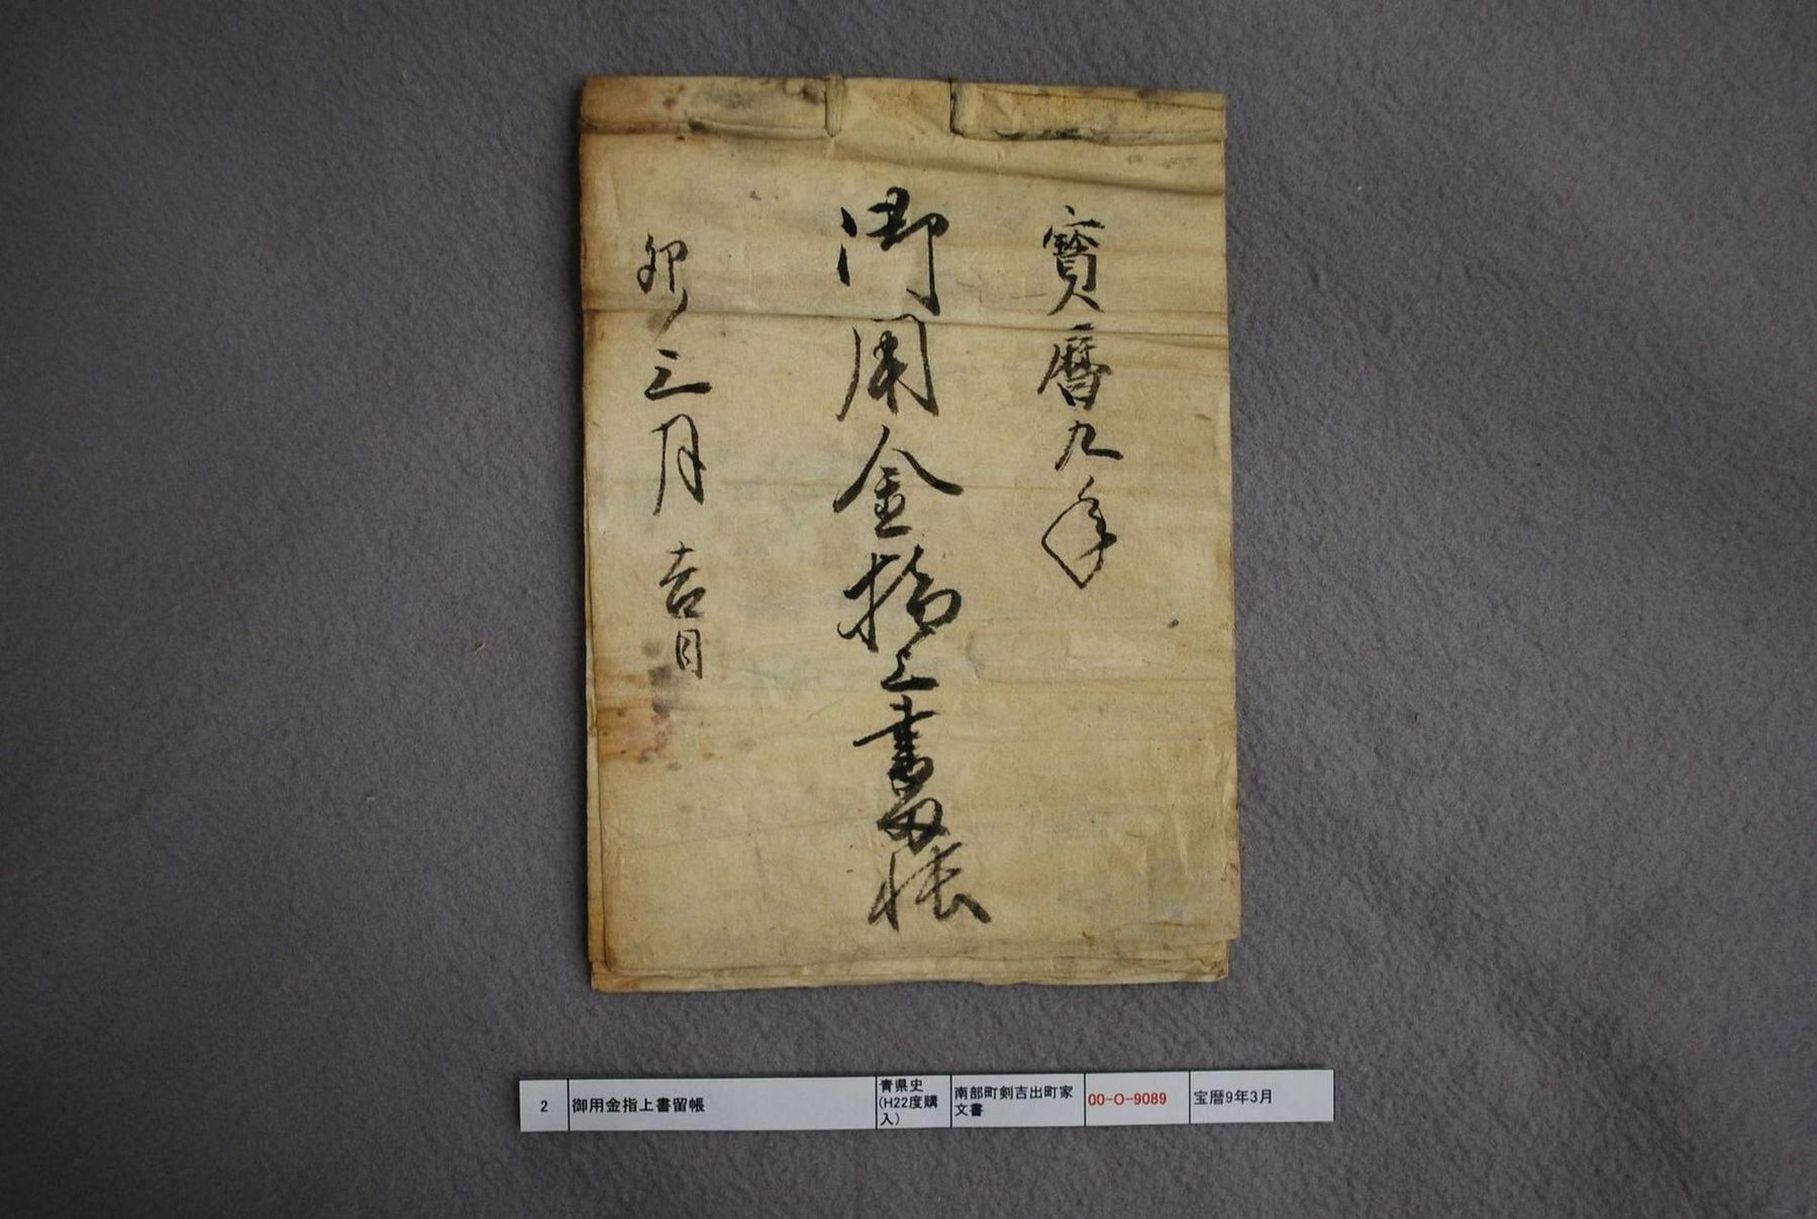 寶暦九年
御用金指上書留帳
卯ノ三月吉日
2
御用金指上書留帳
青県史
(H22度購
入)
南部町剣吉出町家
文書
00-O-9089
宝暦9年3月